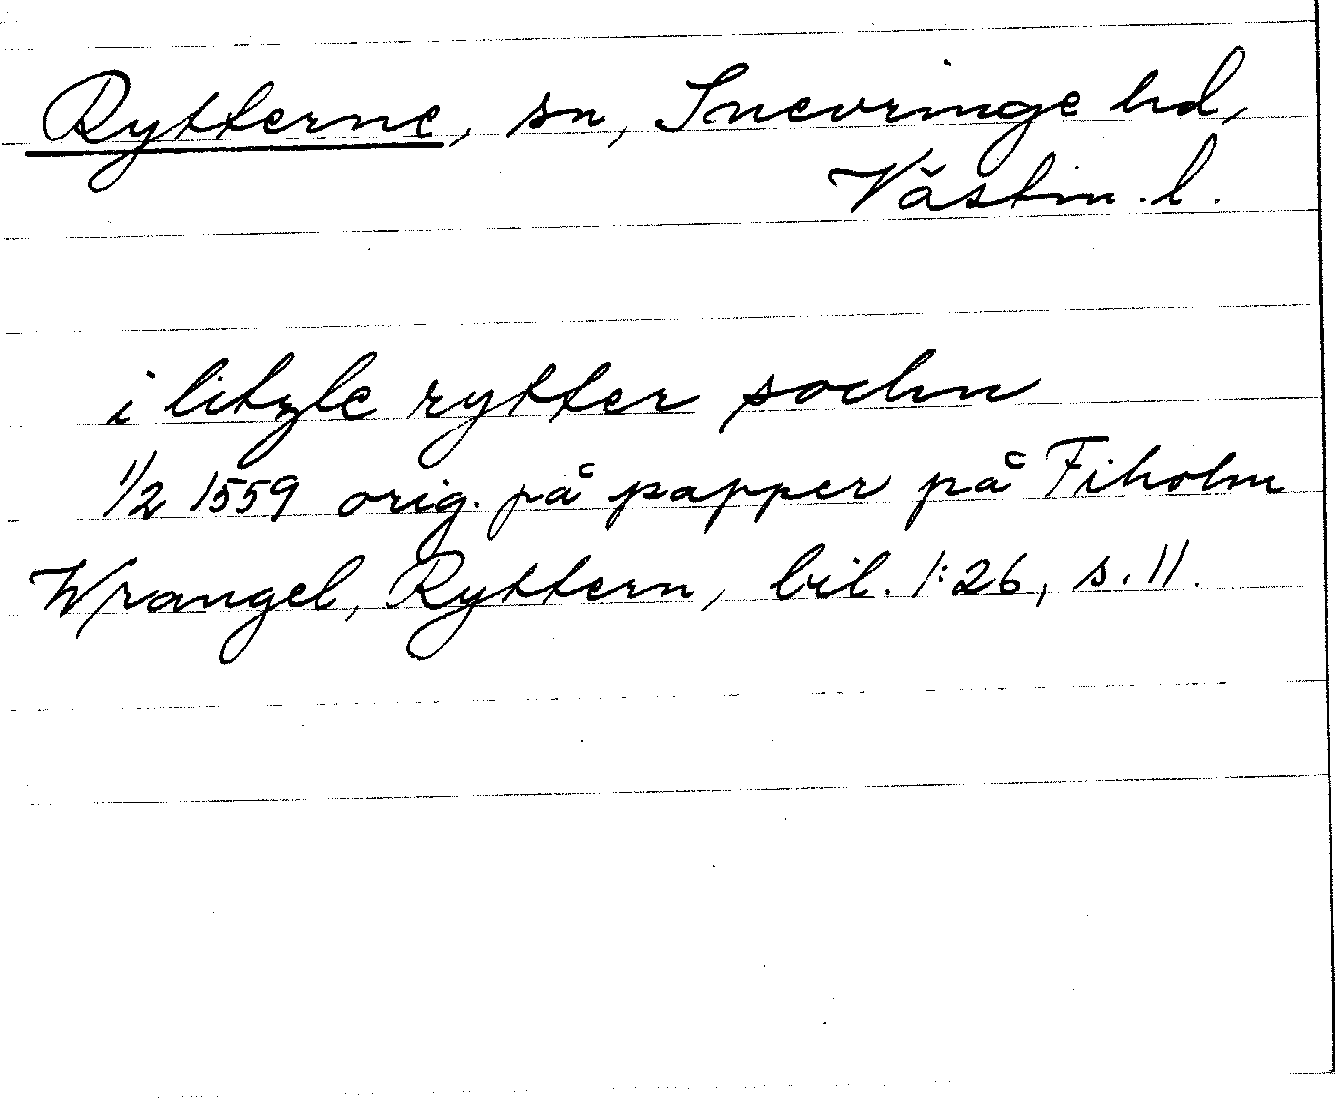 Rytterne, sn, Snevringe hd,
Västm. l.
i litzle rytter sochn
1/2 1559 orig. på papper på Fiholm
Wrangel, Ryttern, bil. 1:26, s. 11.